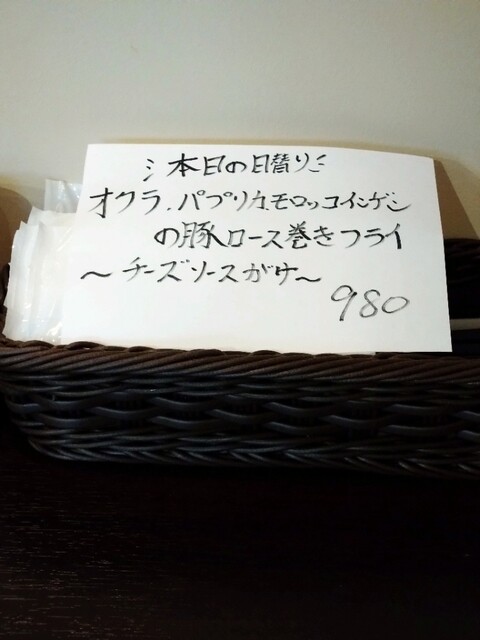 ミ本日の日替りミ
オクラ.パプリカ.モロッコインゲン
の豚ロース巻きフライ
〜チーズソースがけ〜
980